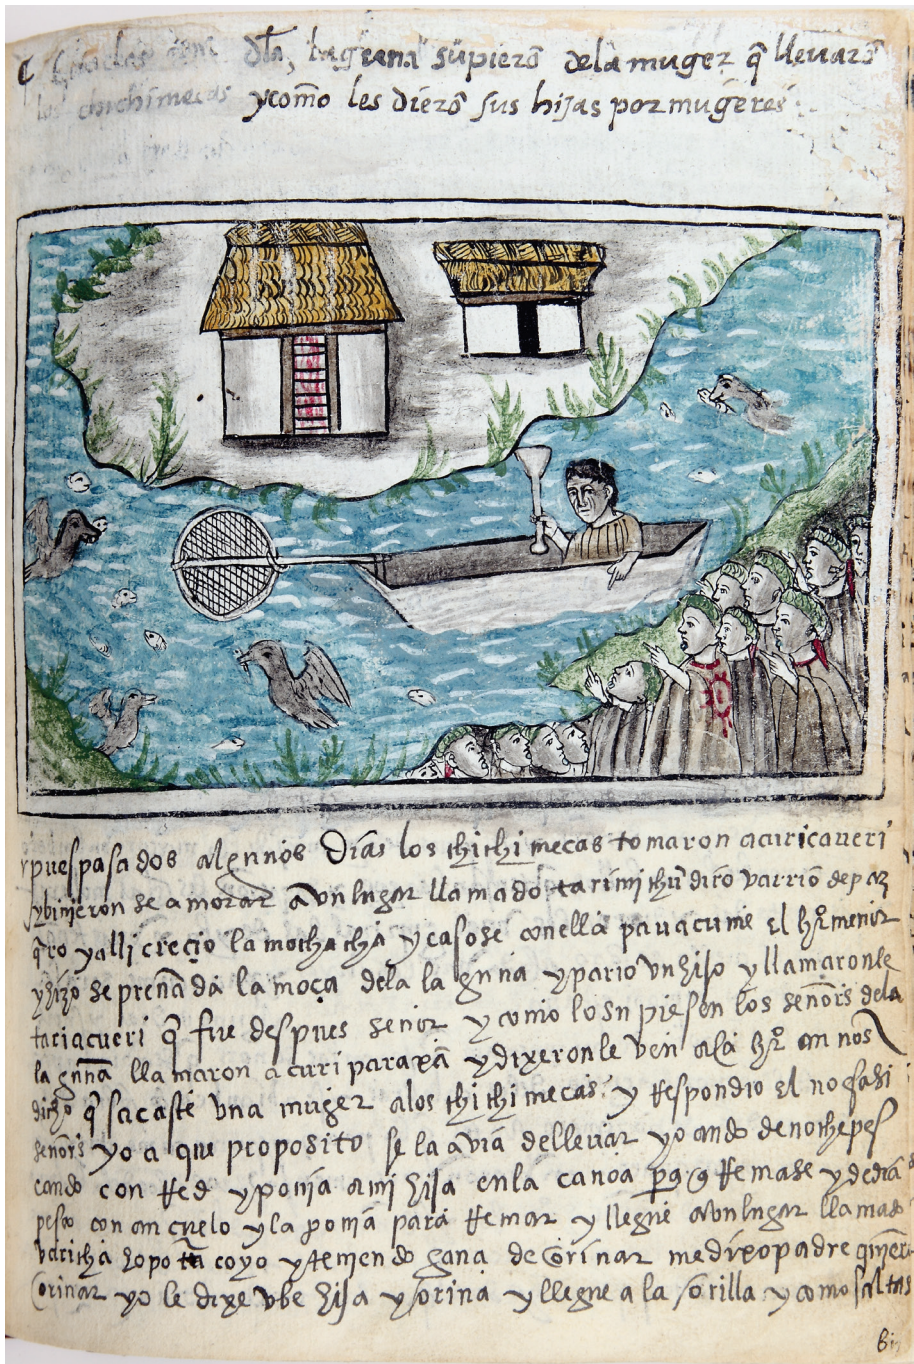 dla, laguna supierō dela muger q̄ lleuarō
los chichimecas ycomo les dierō sus hijas por mugeres
ypues pasados algunos Días los chichimecas tomaron acuricaueri
ybinjeron se amorar A vn lugar llamado tarimichū diro varrio de paz
q̄ro yalli creçio la mochacha y casose conella pauacume El hr̄o menor
yhizo se preñada la moça dela laguna yparío vn hijo y llamaronle
tariacueri q̄ fue despues señor y como lo supiesen los señors dela
lagūna llamaron acuriparaxā ydixeronle ven acā hr̄o an nos
dicho q̄ sacaste vna muger alos chichimecas y Respondio El no es asi
señors yo a que proposito se la avia delleuar yo ando denoche pes
cando con Red yponja amj hija enla canoa pa q Remase y dedia
pesco con ançuelo yla ponia para Remar y llegue avn lugar llamado
varicha hopotacoyo y tenjendo gana de orinar me dixo padre qujero
orinar yo le dixe vbe hija y orina y llegue a la orilla y como salta